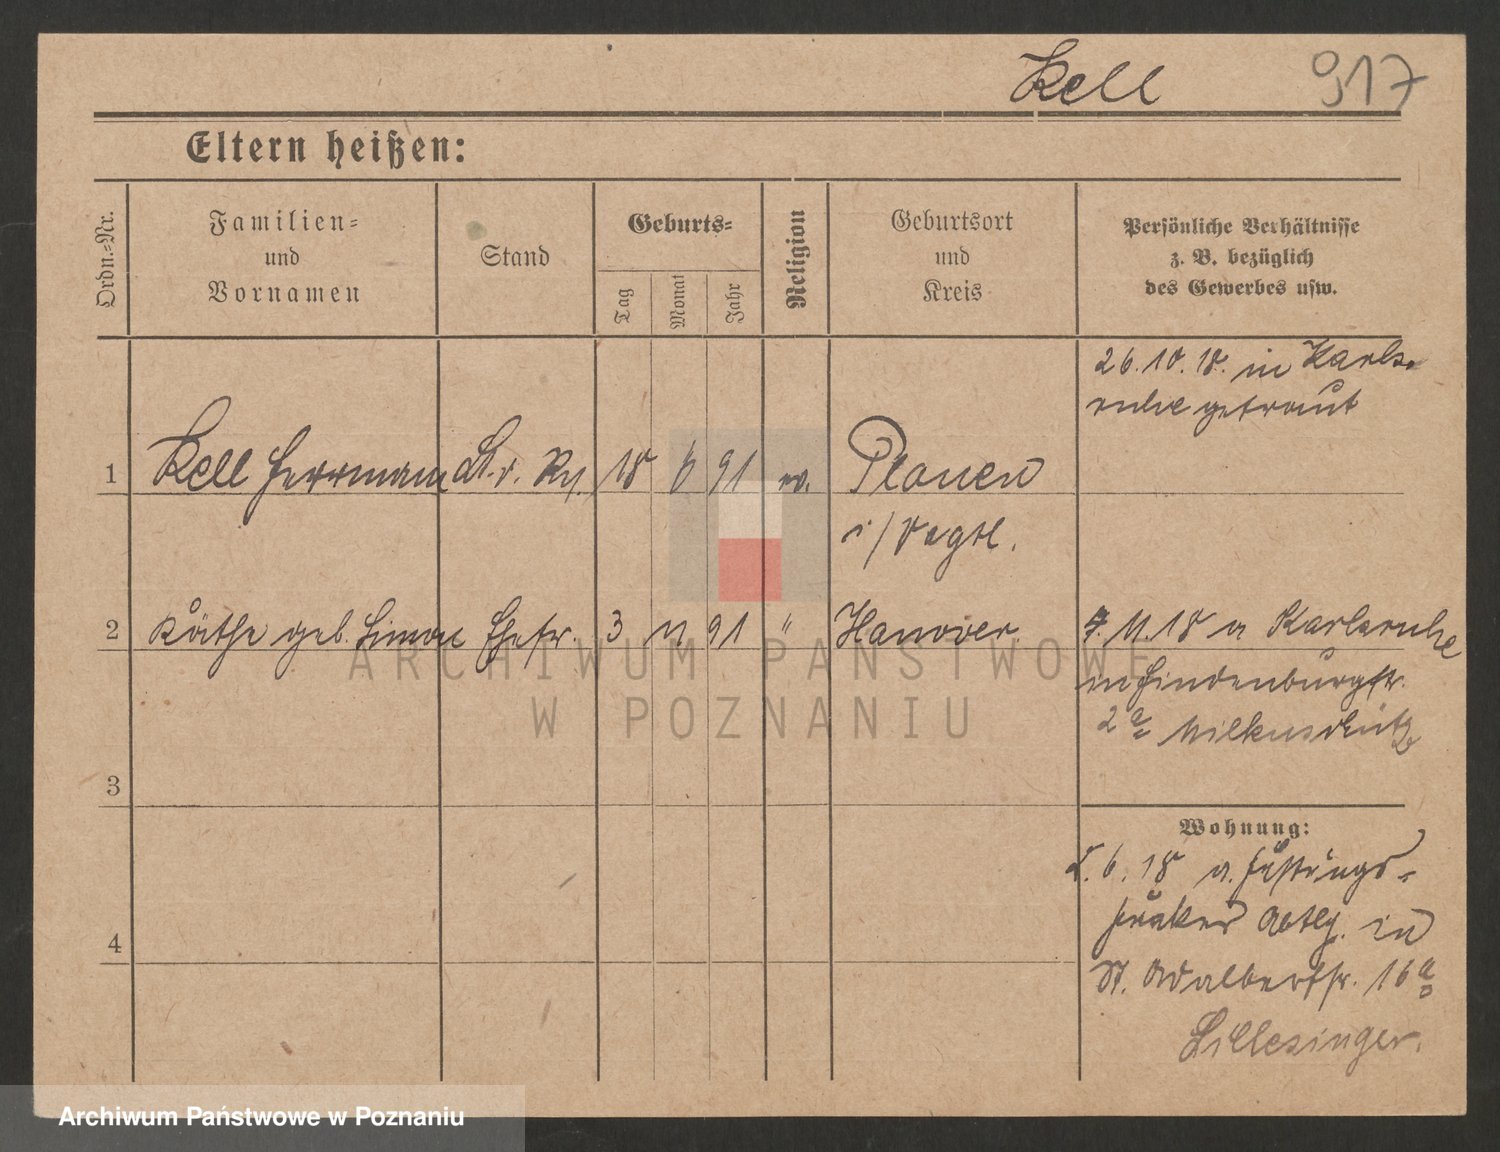 Kell 917
Eltern heißen:
Ordn.=Nr.
Familien=
und
Vornamen
Stand
Geburts=
Tag
Monat
Jahr
Religion
Geburtsort
und
Kreis
Persönliche Verhältnisse
z. B. bezüglich
des Gewerbes usw.
26.10.18. in Karls-
ruhe getraut
1 Kell Herrmann Lt. d. R. 18 6 91 ev. Plauen
i/Vogtl.
2 Käthe geb. Simon Ehefr. 3 11 91 " Hanover
7.11.18 a Karlsruhe
in Hindenburgstr.
2a
3
Wohnung:
6.18 a. Festungs-
Abtlg. in
St. Adalbertstr. 16a
4
ARCHIWUM PAŃSTWOWE
W POZNANIU
Archiwum Państwowe w Poznaniu